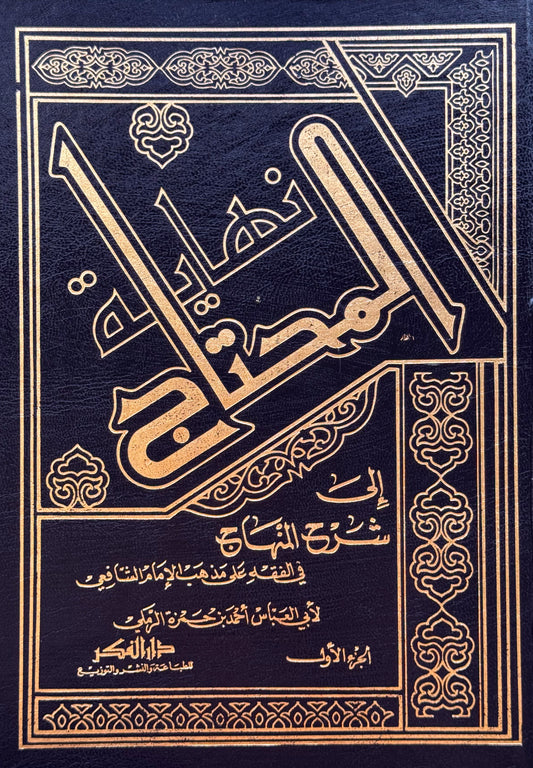 نهاية
المحتاج
إلى
شرح المنهاج
في الفقه على مذهب الإمام الشافعي
لأبي العباس أحمد بن حمزة الرملي
الجزء الأول
دار الفكر
للطباعة والنشر والتوزيع